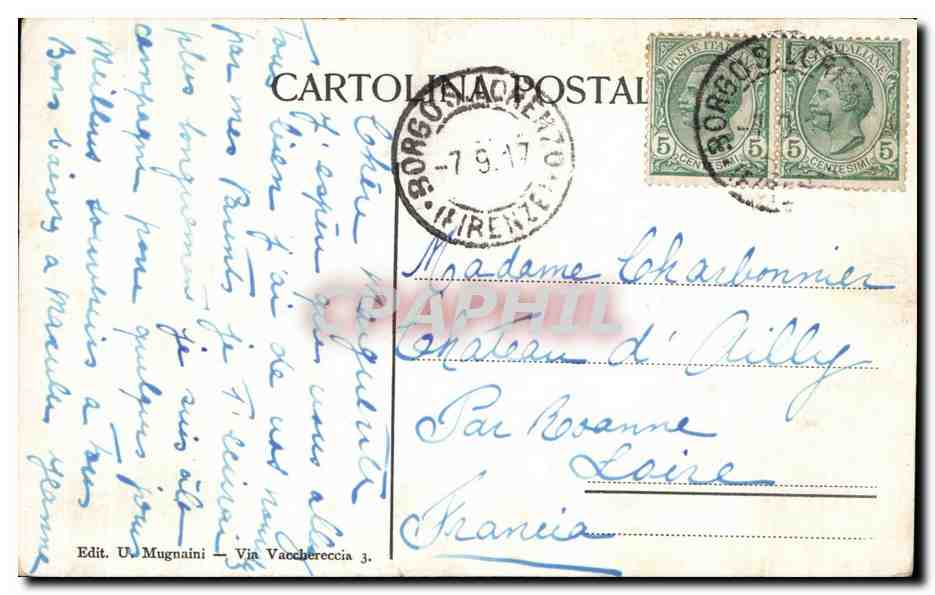 CARTOLINA POSTAL
POSTE ITALIANE
5 CENTESIMI 5
POSTE ITALIANE
5 CENTESIMI 5
BORGO S. LORENZO
-7.9.17
(FIRENZE)
BORGO S. LOR
Madame Charbonnier
Château d'Ailly
Par Roanne
Loire
Francia
Chère Marguerite
J'espère que vous allez
tous bien j'ai de vos
par mes Parents je t'écrirai
plus longuement je suis à la
campagne pour quelques jours
Meilleurs souvenirs à tous
Bons baisers à Jeanne
Edit. U. Mugnaini — Via Vacchereccia 3.
CPAPHIL